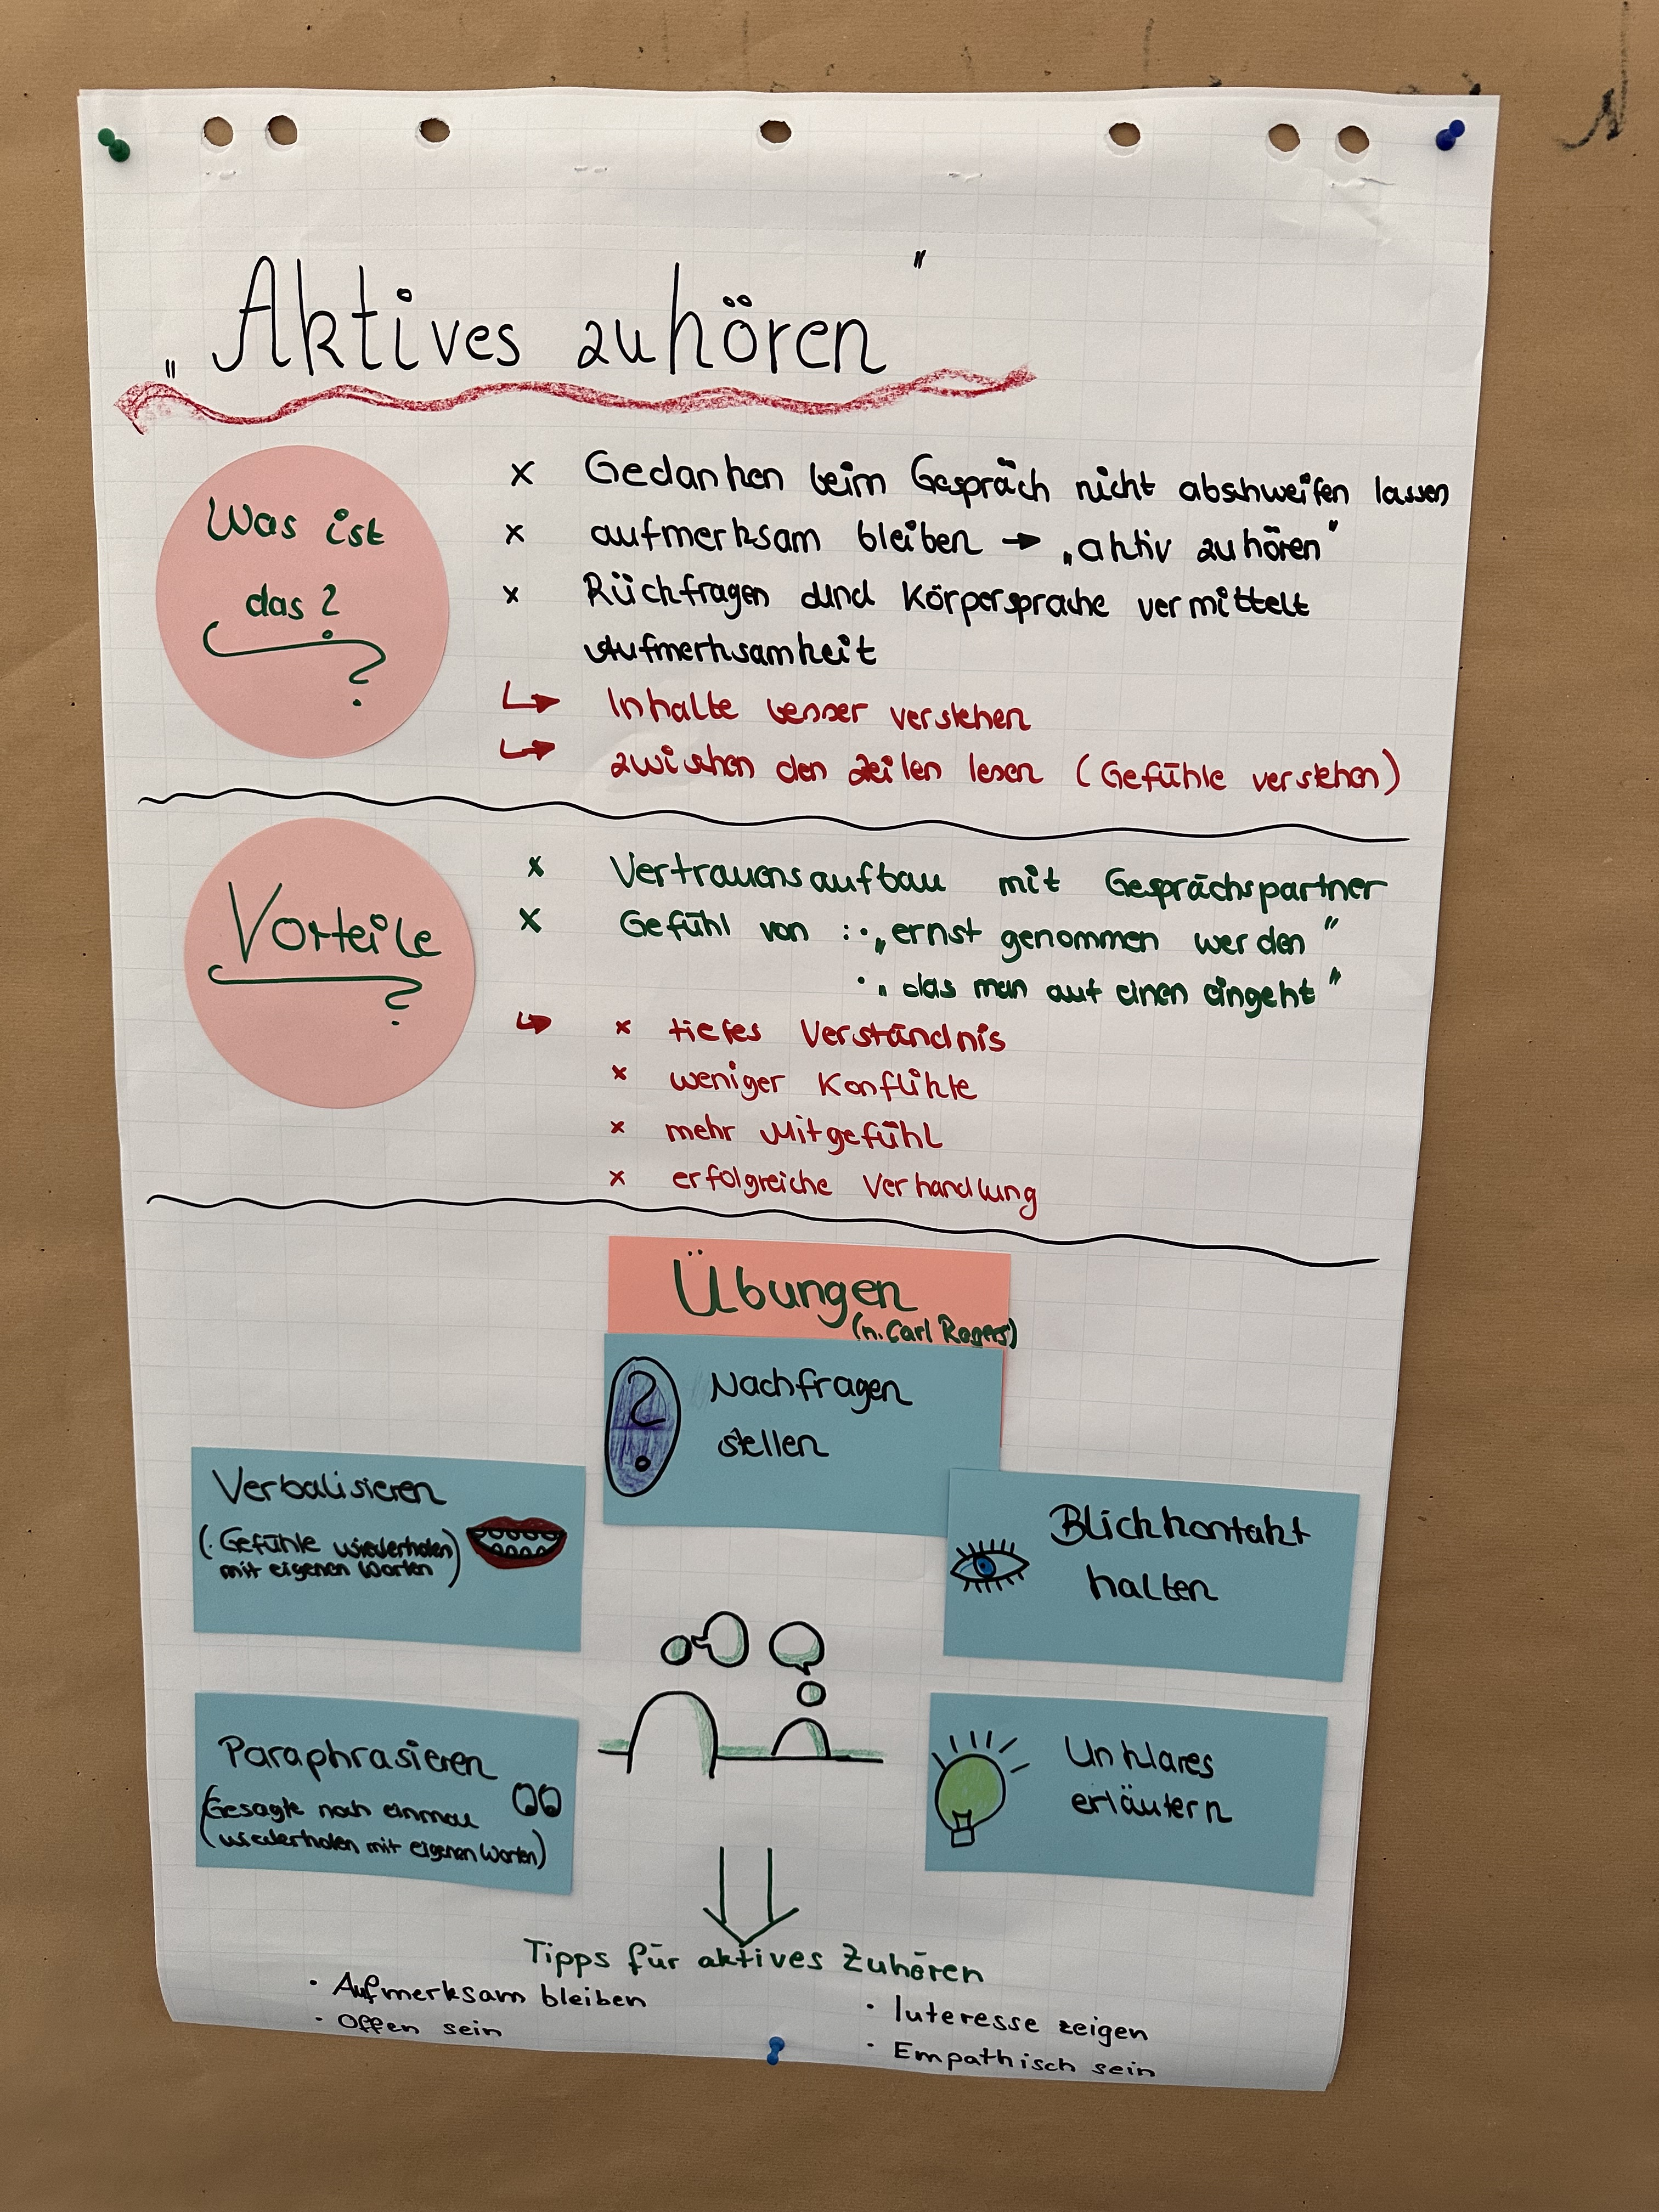 „Aktives zuhören"
Was ist
das?
?
x Gedanken beim Gespräch nicht abschweifen lassen
x aufmerksam bleiben → „aktiv zuhören"
x Rückfragen und Körpersprache vermittelt
Aufmerksamkeit
↳ Inhalte besser verstehen
↳ zwischen den Zeilen lesen (Gefühle verstehen)
Vorteile
?
x Vertrauensaufbau mit Gesprächspartner
x Gefühl von : · „ernst genommen werden"
· „das man auf einen eingeht"
↳ x tiefes Verständnis
x weniger Konflikte
x mehr Mitgefühl
x erfolgreiche Verhandlung
Übungen
(n. Carl Rogers)
? Nachfragen
stellen
Verbalisieren
(Gefühle wiederholen
mit eigenen Worten)
Blickkontakt
halten
Paraphrasieren
(Gesagte noch einmal
wiederholen mit eigenen Worten)
Unklares
erläutern
Tipps für aktives Zuhören
· Aufmerksam bleiben
· Offen sein
· Interesse zeigen
· Empathisch sein